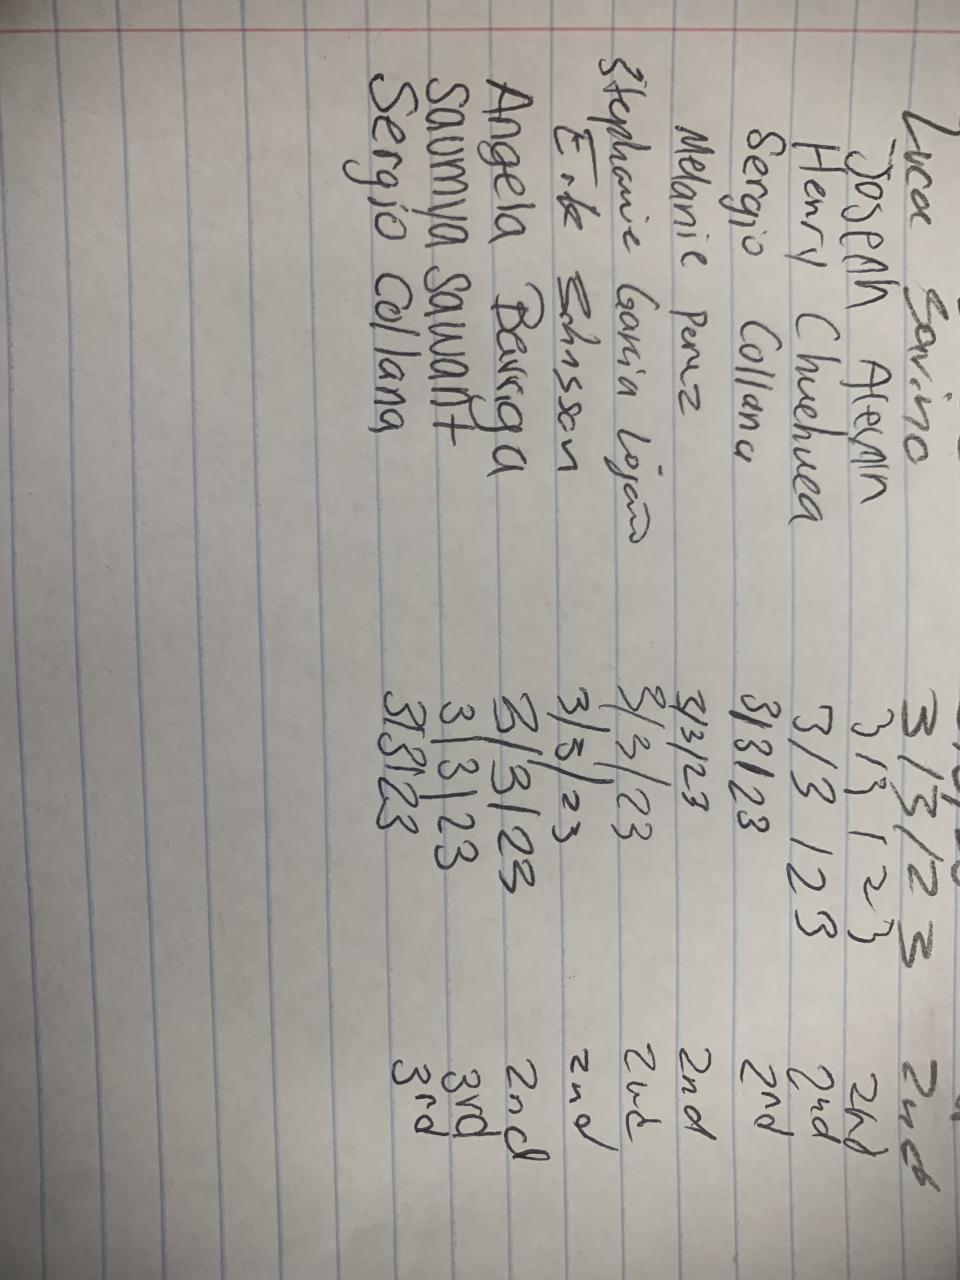 Luca Sorino 3/3/23 2nd
Joseph 3/3/23 2nd
Henry Chuehuea 3/3/23 2nd
Sergio Collana 3/3/23 2nd
Melanie Perez 3/3/23 2nd
Stephanie Garcia Lojano 3/3/23 2nd
Erik 3/3/23 2nd
Angela Barriga 3/3/23 2nd
Saumya Sawant 3/3/23 3rd
Sergio Collana 3/3/23 3rd